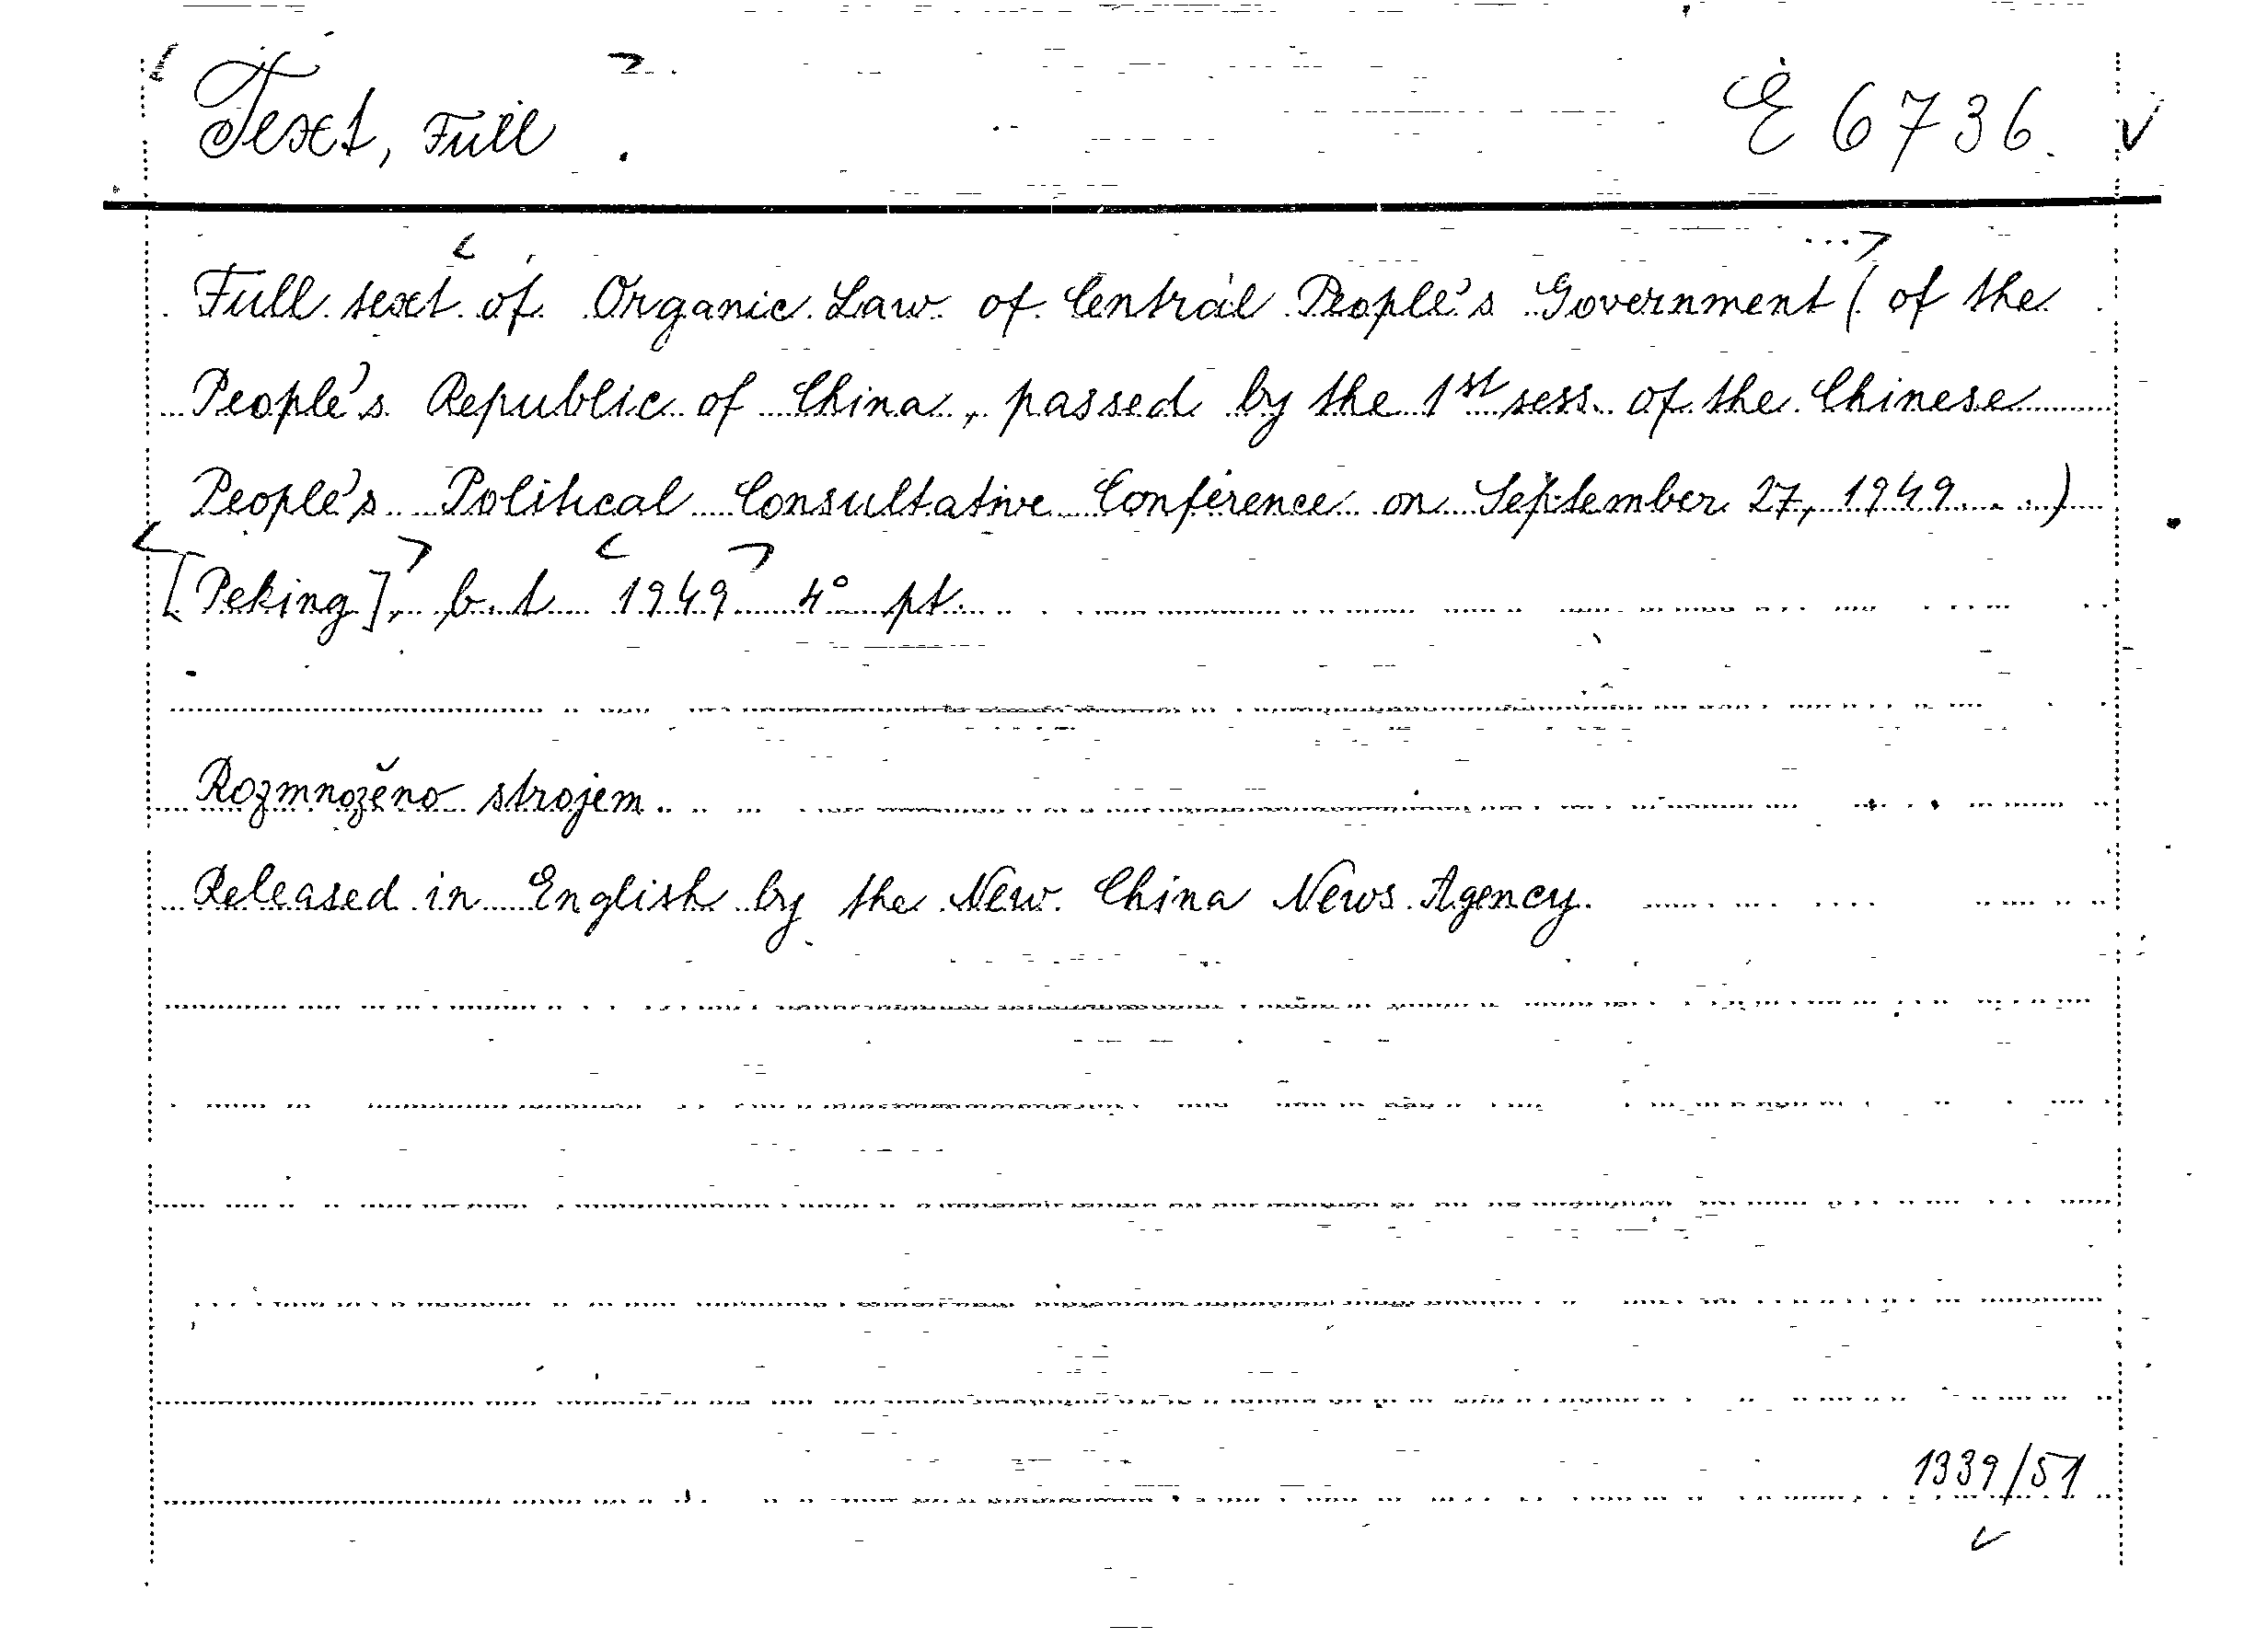 Text, Full E 6736
Full text of Organic Law of Central People's Government (of the
People's Republic of China, passed by the 1st sess. of the Chinese
People's Political Consultative Conference on September 27, 1949...)
[Peking], b. t. 1949 4° pt.
Rozmnoženo strojem.
Released in English by the New China News Agency.
1339/51